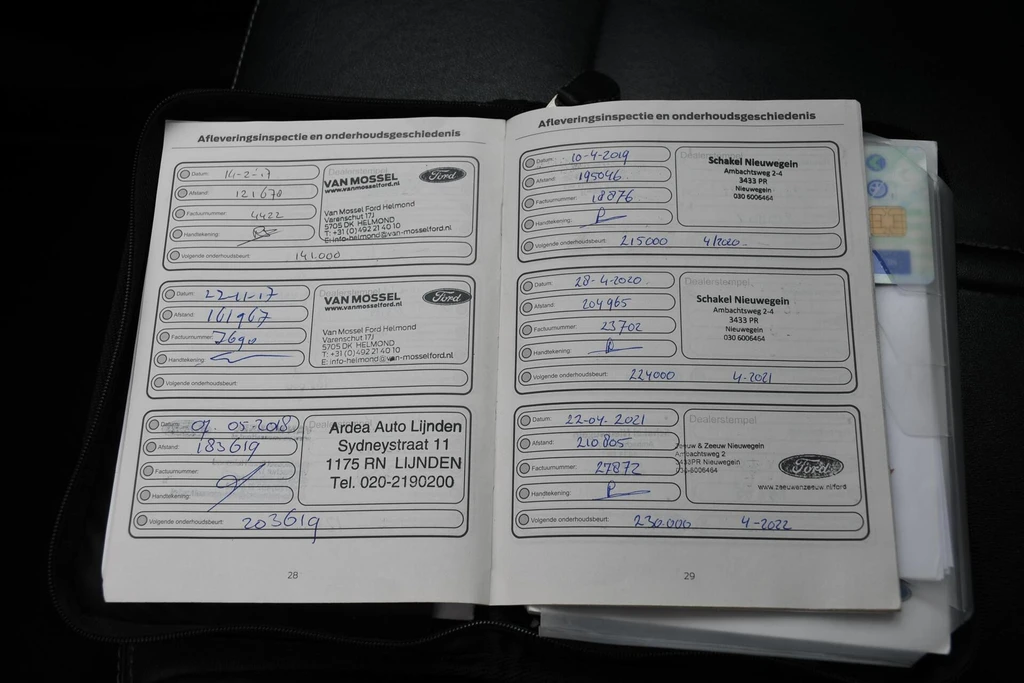 Afleveringsinspectie en onderhoudsgeschiedenis
Datum: 14-2-'17
Afstand: 121670
Factuurnummer: 4422
Handtekening:
Volgende onderhoudsbeurt: 141.000
Dealerstempel
VAN MOSSEL Ford
www.vanmosselford.nl
Van Mossel Ford Helmond
Varenschut 17J
5705 DK HELMOND
T: +31 (0)492 21 40 10
E: info-helmond@van-mosselford.nl
Datum: 22-11-17
Afstand: 161967
Factuurnummer: 7690
Handtekening:
Volgende onderhoudsbeurt:
Dealerstempel
VAN MOSSEL Ford
www.vanmosselford.nl
Van Mossel Ford Helmond
Varenschut 17J
5705 DK HELMOND
T: +31 (0)492 21 40 10
E: info-helmond@van-mosselford.nl
Datum: 07.05-2018
Afstand: 183619
Factuurnummer:
Handtekening:
Volgende onderhoudsbeurt: 203619
Ardea Auto Lijnden
Sydneystraat 11
1175 RN LIJNDEN
Tel. 020-2190200
28
Afleveringsinspectie en onderhoudsgeschiedenis
Datum: 10-4-2019
Afstand: 195046
Factuurnummer: 18876
Handtekening:
Volgende onderhoudsbeurt: 215000 4/2020
Dealerstempel
Schakel Nieuwegein
Ambachtsweg 2-4
3433 PR
Nieuwegein
030 6006464
Datum: 28-4-2020
Afstand: 204965
Factuurnummer: 23702
Handtekening:
Volgende onderhoudsbeurt: 224000 4-2021
Dealerstempel
Schakel Nieuwegein
Ambachtsweg 2-4
3433 PR
Nieuwegein
030 6006464
Datum: 22-04-2021
Afstand: 210805
Factuurnummer: 27872
Handtekening:
Volgende onderhoudsbeurt: 230.000 4-2022
Dealerstempel
Zeeuw & Zeeuw Nieuwegein
Ambachtsweg 2
3433PR Nieuwegein
030-6006464
Ford
www.zeeuwenzeeuw.nl/ford
29